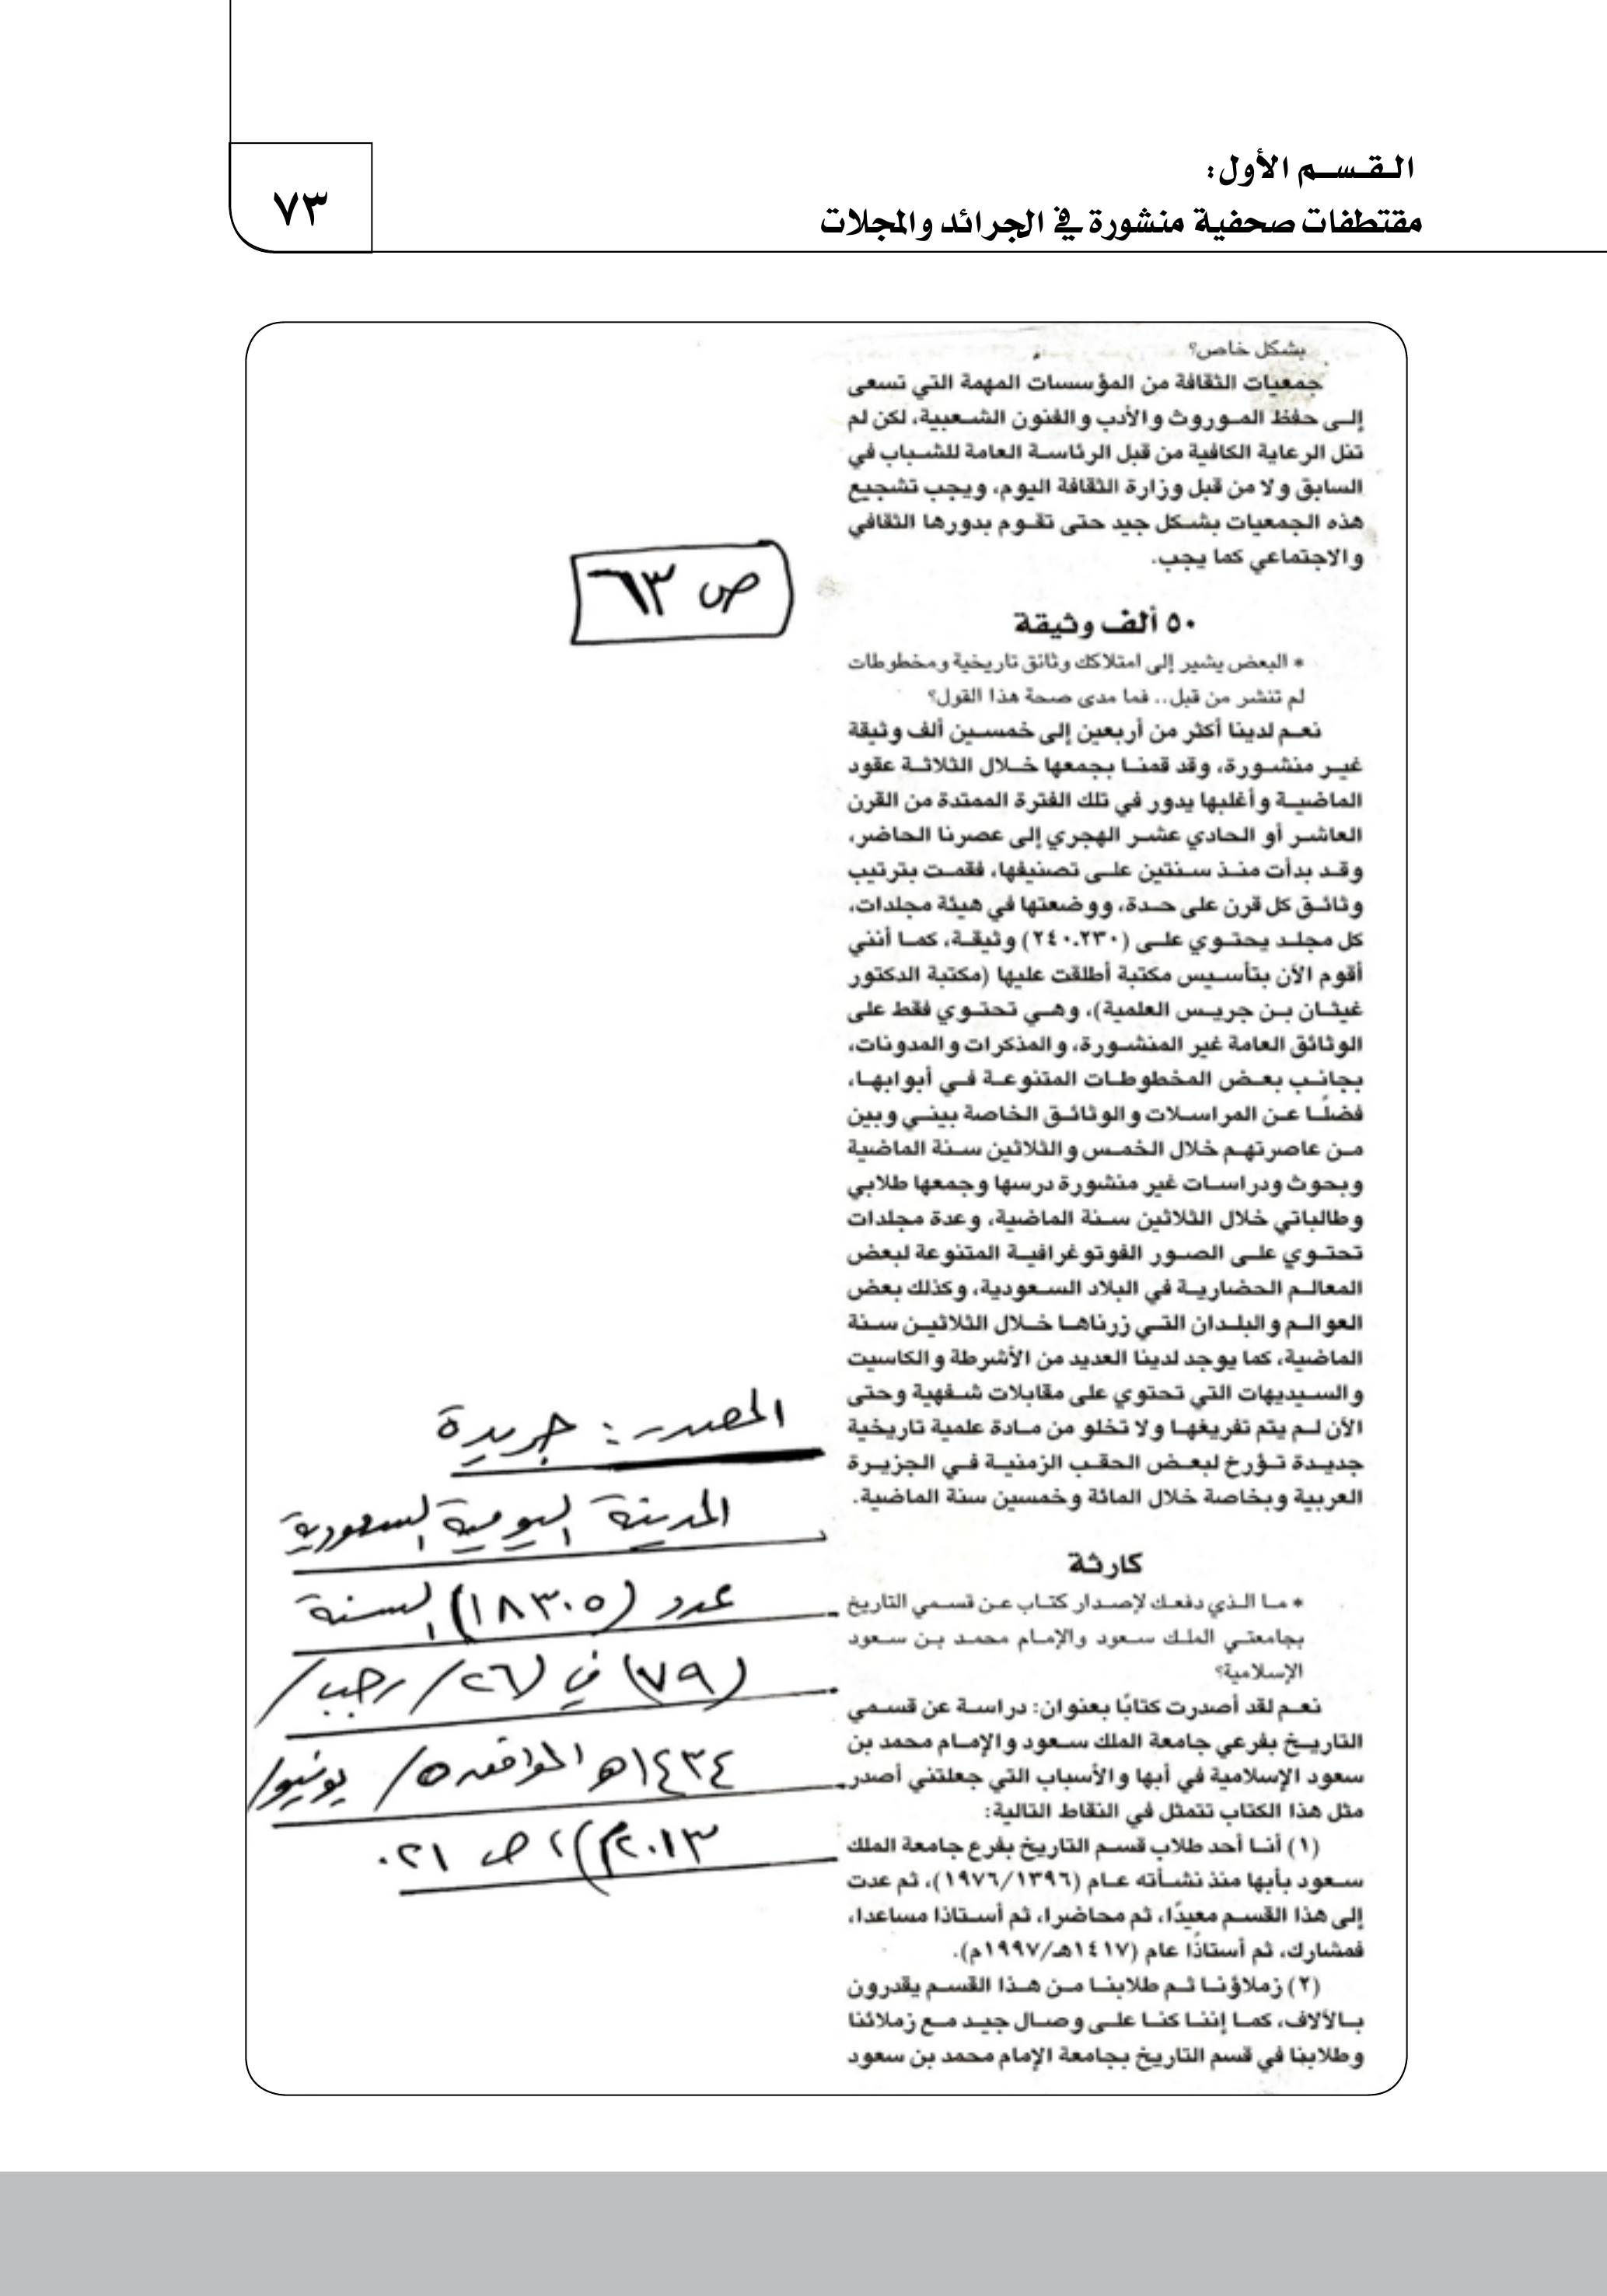 القسم الأول:
مقتطفات صحفية منشورة في الجرائد والمجلات
٧٣
بشكل خاص؟
جمعيات الثقافة من المؤسسات المهمة التي تسعى
إلى حفظ الموروث والأدب والفنون الشعبية، لكن لم
تنل الرعاية الكافية من قبل الرئاسة العامة للشباب في
السابق ولا من قبل وزارة الثقافة اليوم، ويجب تشجيع
هذه الجمعيات بشكل جيد حتى تقوم بدورها الثقافي
والاجتماعي كما يجب.
٥٠ ألف وثيقة
* البعض يشير إلى امتلاكك وثائق تاريخية ومخطوطات
لم تنشر من قبل.. فما مدى صحة هذا القول؟
نعم لدينا أكثر من أربعين إلى خمسين ألف وثيقة
غير منشورة، وقد قمنا بجمعها خلال الثلاثة عقود
الماضية وأغلبها يدور في تلك الفترة الممتدة من القرن
العاشر أو الحادي عشر الهجري إلى عصرنا الحاضر،
وقد بدأت منذ سنتين على تصنيفها، فقمت بترتيب
وثائق كل قرن على حدة، ووضعتها في هيئة مجلدات،
كل مجلد يحتوي على (٢٤٠.٢٣٠) وثيقة، كما أنني
أقوم الآن بتأسيس مكتبة أطلقت عليها (مكتبة الدكتور
غيثان بن جريس العلمية)، وهي تحتوي فقط على
الوثائق العامة غير المنشورة، والمذكرات والمدونات،
بجانب بعض المخطوطات المتنوعة في أبوابها،
فضلًا عن المراسلات والوثائق الخاصة بيني وبين
من عاصرتهم خلال الخمس والثلاثين سنة الماضية
وبحوث ودراسات غير منشورة درسها وجمعها طلابي
وطالباتي خلال الثلاثين سنة الماضية، وعدة مجلدات
تحتوي على الصور الفوتوغرافية المتنوعة لبعض
المعالم الحضارية في البلاد السعودية، وكذلك بعض
العوالم والبلدان التي زرناها خلال الثلاثين سنة
الماضية، كما يوجد لدينا العديد من الأشرطة والكاسيت
والسيديهات التي تحتوي على مقابلات شفهية وحتى
الآن لم يتم تفريغها ولا تخلو من مادة علمية تاريخية
جديدة تؤرخ لبعض الحقب الزمنية في الجزيرة
العربية وبخاصة خلال المائة وخمسين سنة الماضية.
كارثة
* ما الذي دفعك لإصدار كتاب عن قسمي التاريخ
بجامعتي الملك سعود والإمام محمد بن سعود
الإسلامية؟
نعم لقد أصدرت كتابًا بعنوان: دراسة عن قسمي
التاريخ بفرعي جامعة الملك سعود والإمام محمد بن
سعود الإسلامية في أبها والأسباب التي جعلتني أصدر
مثل هذا الكتاب تتمثل في النقاط التالية:
(١) أنا أحد طلاب قسم التاريخ بفرع جامعة الملك
سعود بأبها منذ نشأته عام (١٩٧٦/١٣٩٦)، ثم عدت
إلى هذا القسم معيدًا، ثم محاضرا، ثم أستاذا مساعدا،
فمشارك، ثم أستاذًا عام (١٤١٧هـ/١٩٩٧م).
(٢) زملاؤنا ثم طلابنا من هذا القسم يقدرون
بالآلاف، كما إننا كنا على وصال جيد مع زملائنا
وطلابنا في قسم التاريخ بجامعة الإمام محمد بن سعود
ص ٦٣
المصدر : جريدة
المدينة اليومية السعودية
عدد (١٨٣٠٥) السنة
(٧٩) في (٢٦/ رجب/
١٤٣٤هـ الموافق ٥/ يونيو/
٢٠١٣م)، ص ٢١.